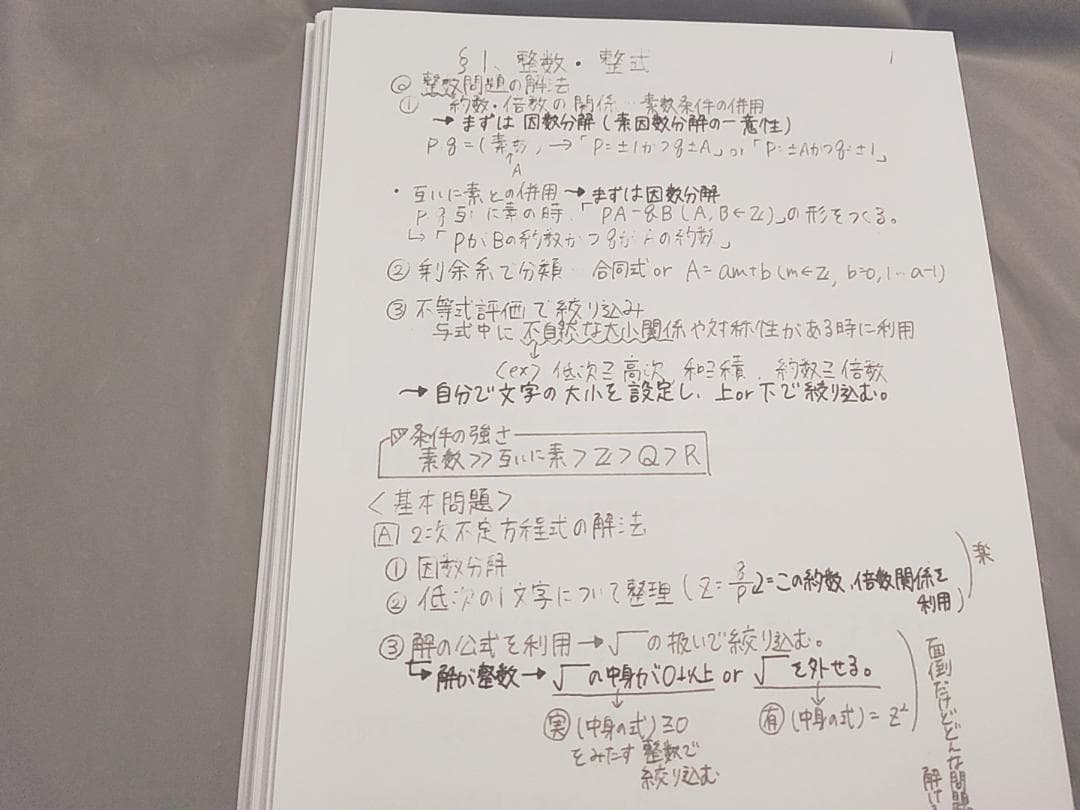 §1. 整数・整式
1
◎ 整数問題の解法
① 約数・倍数の関係 素数条件の併用
→まずは 因数分解(素因数分解の一意性)
pq=(素数) → 「p=±1かつq=±A」or「p=±Aかつq=±1」
A
・互いに素との併用 → まずは因数分解
p q 互いに素の時、「pA=qB(A,B∈Z)」の形をつくる。
↳「pがBの約数かつqがAの約数」
② 剰余系で分類 合同式 or A=am+b(m∈Z, b=0,1…a-1)
③ 不等式評価で絞り込み
与式中に不自然な大小関係や対称性がある時に利用
<ex> 低次≧高次 和≧積 約数≧倍数
→自分で文字の大小を設定し、上or下で絞り込む。
条件の強さ
素数>>互いに素>Z>Q>R
<基本問題>
A 2次不定方程式の解法
① 因数分解
② 低次の1文字について整理(Z=q/p この約数、倍数関係を利用)
楽
③ 解の公式を利用→√ の扱いで絞り込む。
↳解が整数→√ の中身が0以上 or √ を外せる。
実 (中身の式)≧0
をみたす整数で
絞り込む
有 (中身の式)=Z²
面倒だけどどんな問題
解け